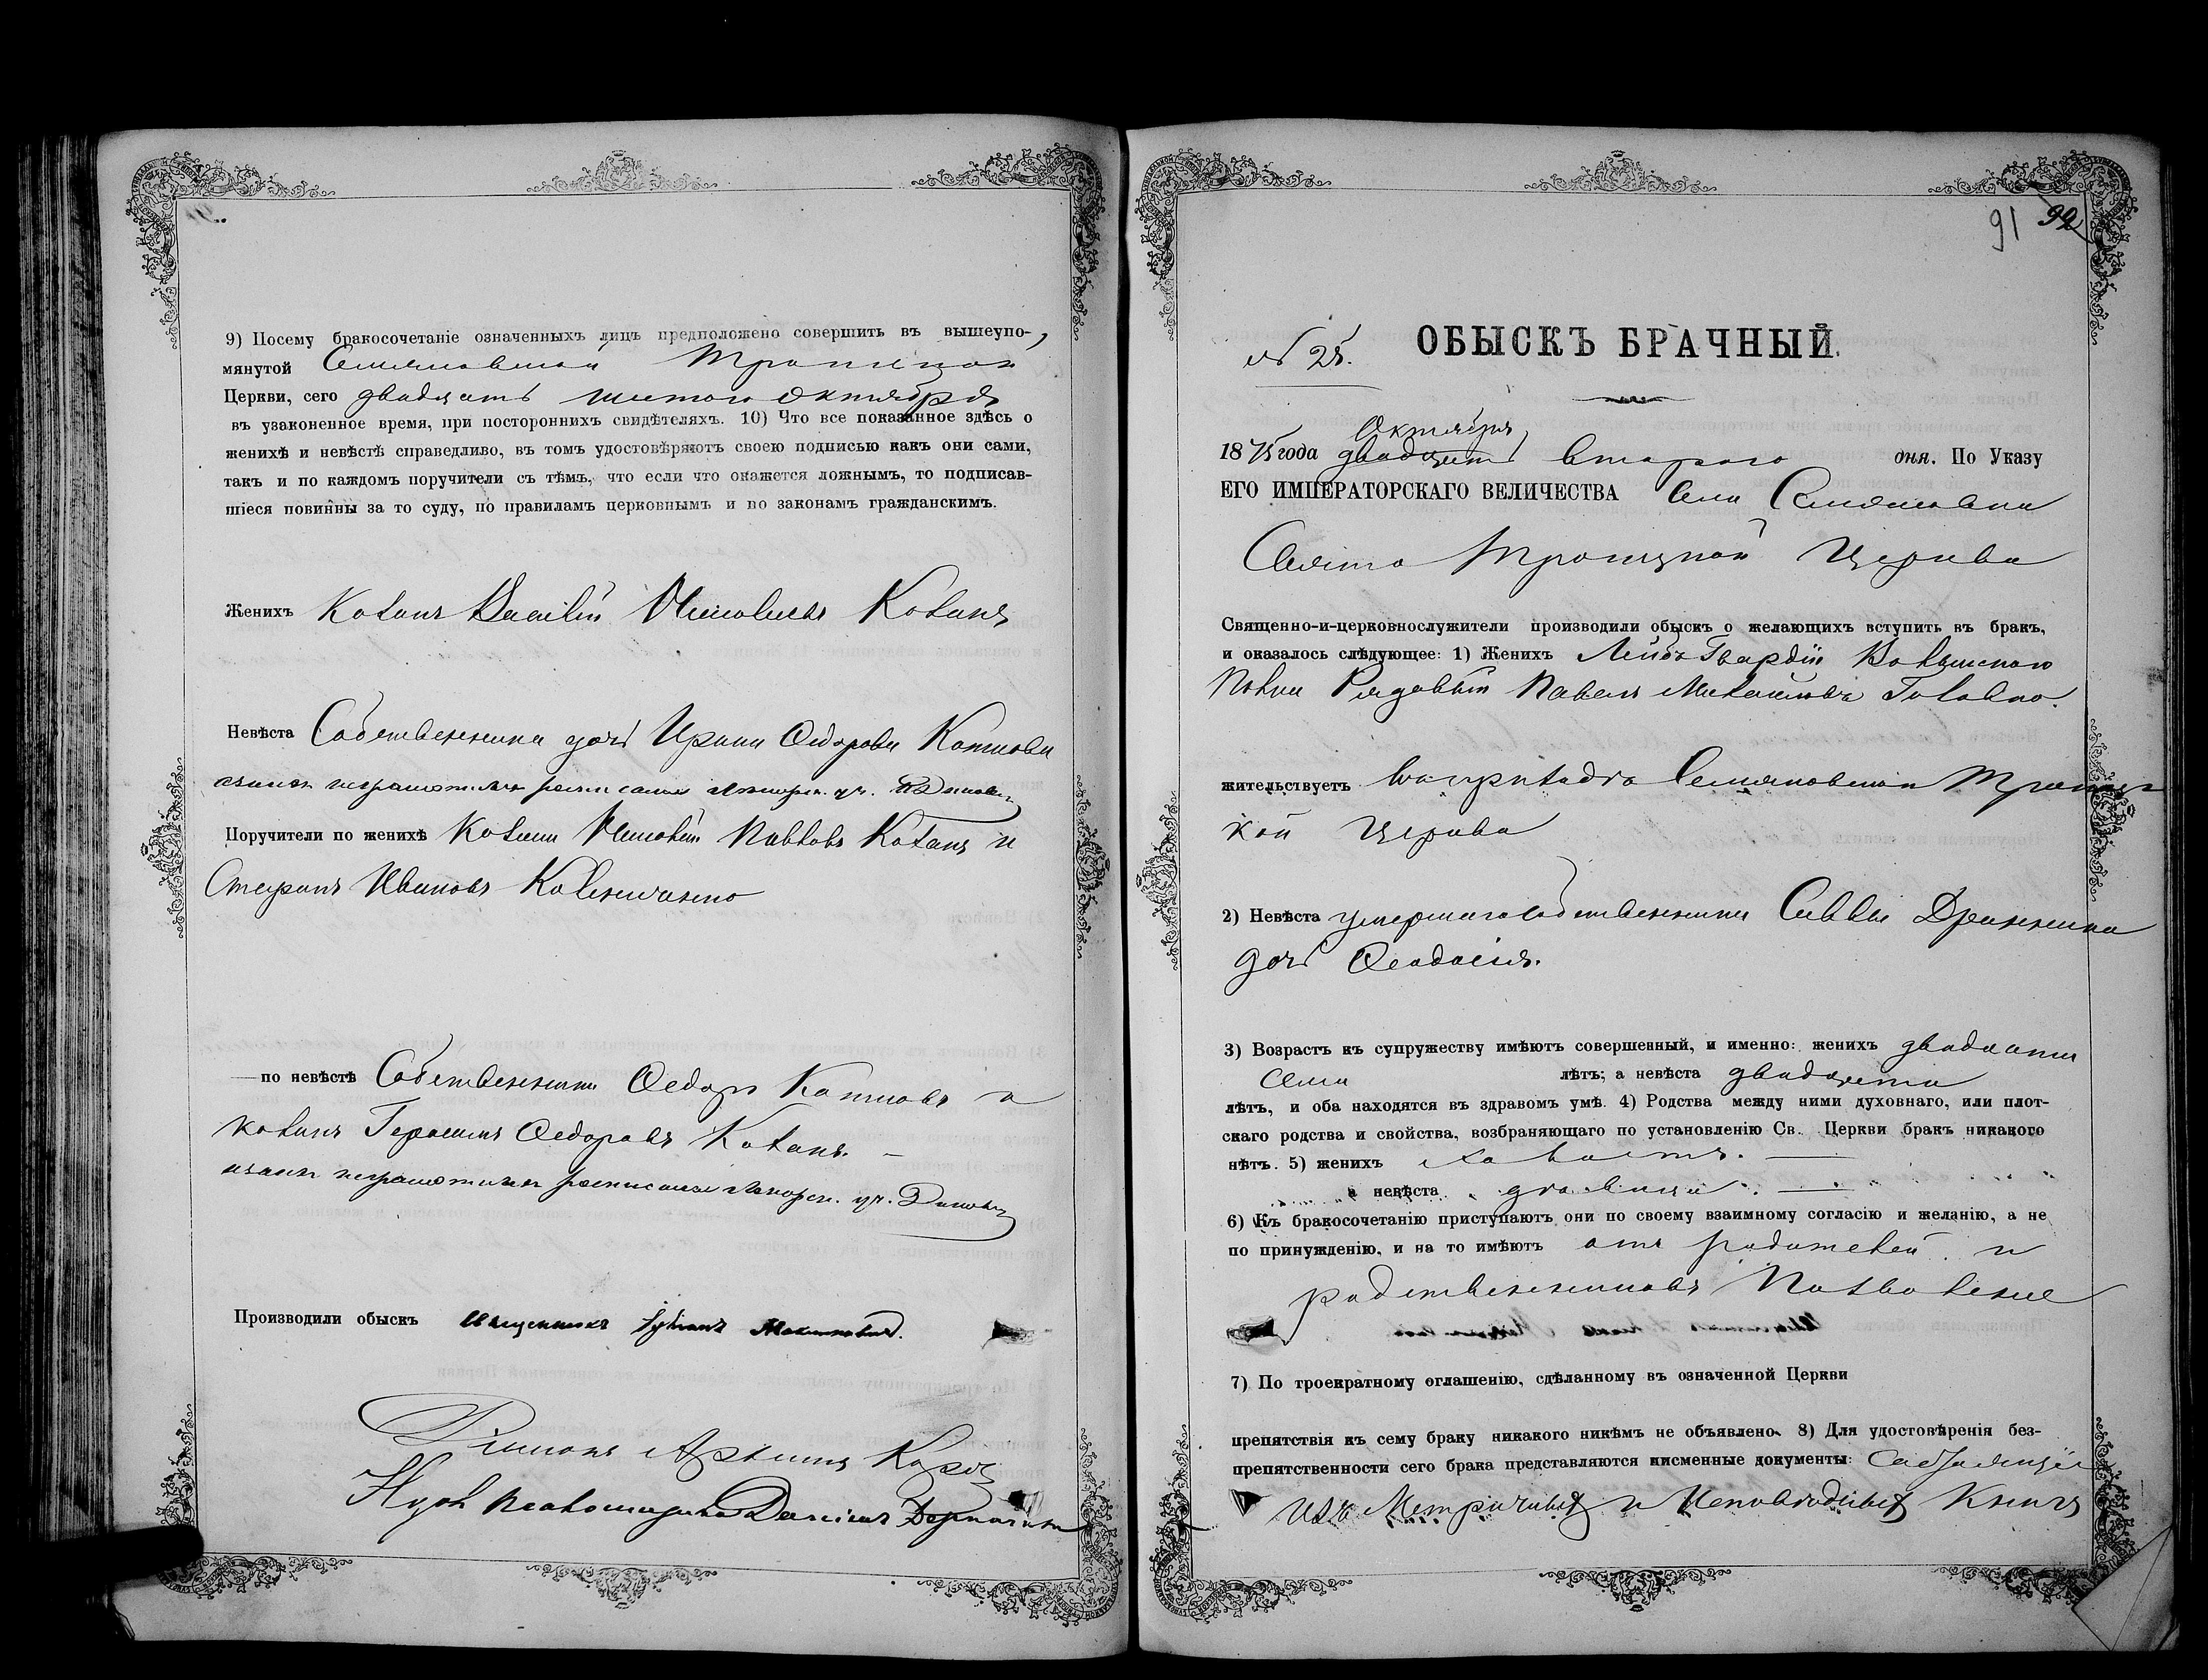 9) Посему бракосочетаніе означенныхъ лицъ предположено совершить въ вышеупо-
мянутой Семяновской Троицкой
Церкви, сего двадцать шестого октября
въ узаконенное время, при постороннихъ свидѣтеляхъ. 10) Что все показанное здѣсь о
женихѣ и невѣстѣ справедливо, въ томъ удостовѣряютъ своею подписью какъ они сами,
такъ и по каждомъ поручители съ тѣмъ, что если что окажется ложнымъ, то подписав-
шіеся повинны за то суду, по правиламъ церковнымъ и по законамъ гражданскимъ.
Женихъ Василій
Невѣста Собственника дочь Ирина Ѳедорова
неграмотныхъ росписался
Поручители по женихѣ Павловъ и
Стефанъ Ивановъ
по невѣстѣ Собственники Ѳедоръ и
Герасимъ Ѳедоровъ
неграмотныхъ росписался
Производили обыскъ Священникъ
91 92
№ 25.
ОБЫСКЪ БРАЧНЫЙ.
Октября
1875 года двадцать второго дня. По Указу
ЕГО ИМПЕРАТОРСКАГО ВЕЛИЧЕСТВА села Семяновки
Свято Троицкой Церкви
Священно-и-церковнослужители производили обыскъ о желающихъ вступить въ бракъ,
и оказалось слѣдующее: 1) Женихъ Лейбъ Гвардіи Волынскаго
Полка Рядовый Павелъ Михайловъ Головко.
жительствуетъ въ приходѣ Семяновской Троиц
кой Церкви
2) Невѣста умершаго собственника Саввы
дочь Ѳеодосія.
3) Возрастъ къ супружеству имѣютъ совершенный, и именно: женихъ двадцати
семи лѣтъ; а невѣста двадцати
лѣтъ, и оба находятся въ здравомъ умѣ. 4) Родства между ними духовнаго, или плот-
скаго родства и свойства, возбраняющаго по установленію Св. Церкви бракъ никакого
нѣтъ. 5) женихъ холостъ.
а невѣста дѣвица.
6) Къ бракосочетанію приступаютъ они по своему взаимному согласію и желанію, а не
по принужденію, и на то имѣютъ отъ родителей и
родственниковъ позволеніе
7) По троекратному оглашенію, сдѣланному въ означенной Церкви
препятствія къ сему браку никакого никѣмъ не объявлено. 8) Для удостовѣренія без-
препятственности сего брака представляются письменные документы:
изъ Метричныхъ и Исповѣдныхъ Книгъ